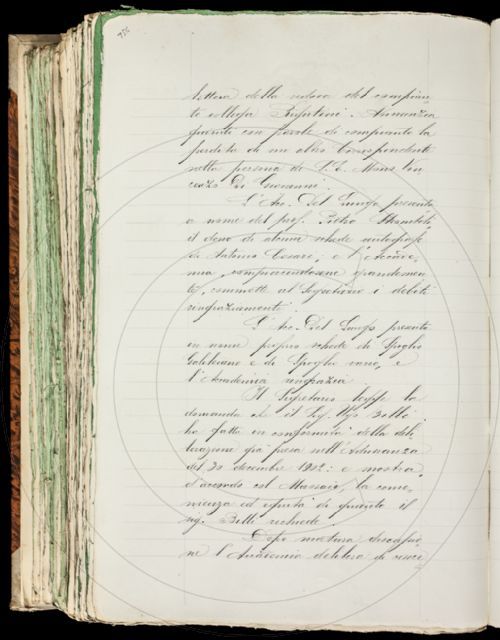 lettera della vedova del compian-
to collega Rufutini. Annunzia
quindi con parole di compianto la
perdita di un altro Corrispondente
nella persona di S. E. Mons. Vin
cenzo Di Giovanni.
L'Arc. Del Lungo presenta
a nome del prof. Pietro
il dono di alcune schede autografe
di Antonio Cesari, e l'Accade-
mia, compiacendosene grandemen-
te, commette al Segretario i debiti
ringraziamenti.
L'Arc. Del Lungo presenta
in nome proprio schede di Spoglio
Galileiano e di Spoglio vario, e
l'Accademia ringrazia.
Il Segretario legge la
domanda che il Sig. Ugo
ha fatta in conformità della deli-
berazione già presa nell'Adunanza
del 30 decembre 1902: e mostra,
d'accordo col Massaio, la conve-
nienza ed equità di quanto il
sig. richiede.
Dopo matura discussio
ne l'Accademia delibera di